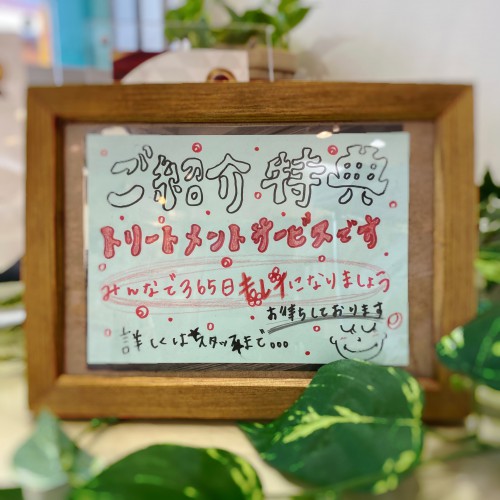 ご紹介特典
トリートメントサービスです
みんなで365日キレイになりましょう
お待ちしております
詳しくはスタッフまで...